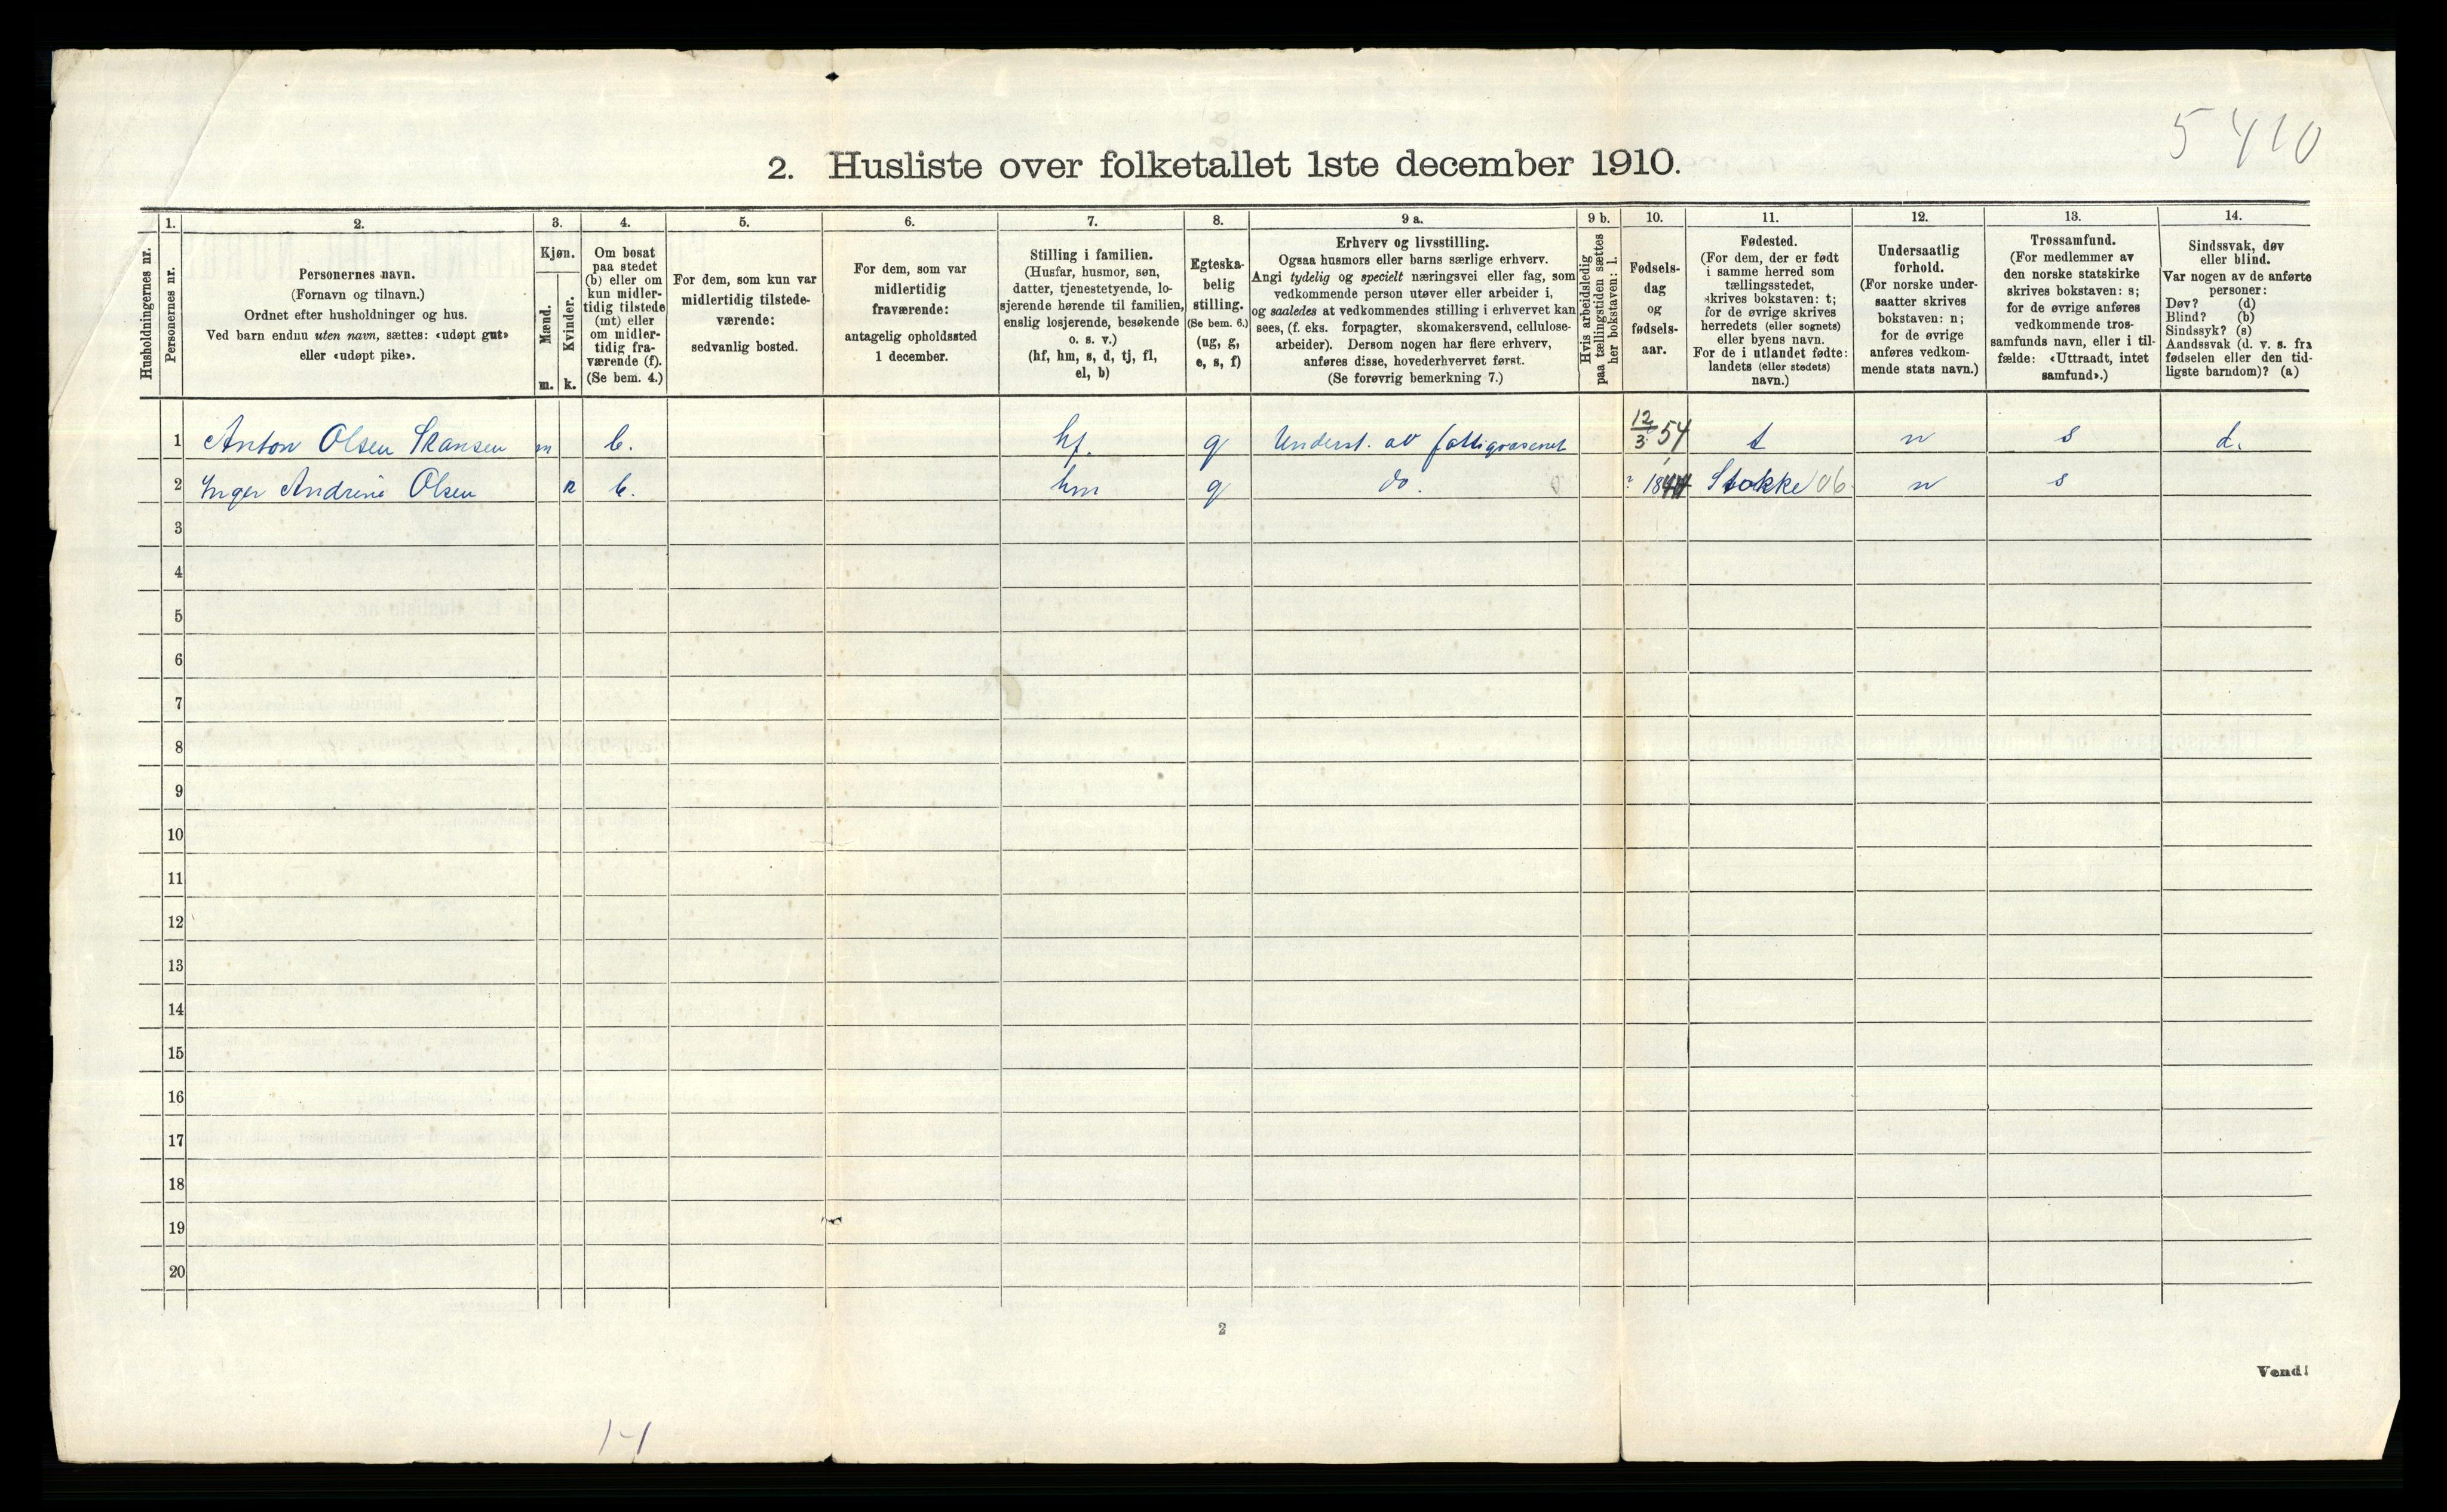 5410
2. Husliste over folketallet 1ste december 1910.
Husholdningernes nr.
1.
Personernes nr.
2.
Personernes navn.
(Fornavn og tilnavn.)
Ordnet efter husholdninger og hus.
Ved barn endnu uten navn, sættes: «udøpt gut»
eller «udøpt pike».
3.
Kjøn.
Mænd.
m.
Kvinder.
k.
4.
Om bosat
paa stedet
(b) eller om
kun midler-
tidig tilstede
(mt) eller
om midler-
tidig fra-
værende (f).
(Se bem. 4.)
5.
For dem, som kun var
midlertidig tilstede-
værende:
sedvanlig bosted.
6.
For dem, som var
midlertidig
fraværende:
antagelig opholdssted
1 december.
7.
Stilling i familien.
(Husfar, husmor, søn,
datter, tjenestetyende, lo-
sjerende hørende til familien,
enslig losjerende, besøkende
o. s. v.)
(hf, hm, s, d, tj, fl,
el, b)
8.
Egteska-
belig
stilling.
(Se bem. 6.)
(ug, g,
e, s, f)
9 a.
Erhverv og livsstilling.
Ogsaa husmors eller barns særlige erhverv.
Angi tydelig og specielt næringsvei eller fag, som
vedkommende person utøver eller arbeider i,
og saaledes at vedkommendes stilling i erhvervet kan
sees, (f. eks. forpagter, skomakersvend, cellulose-
arbeider). Dersom nogen har flere erhverv,
anføres disse, hovederhvervet først.
(Se forøvrig bemerkning 7.)
9 b.
Hvis arbeidsledig
paa tællingstiden sættes
her bokstaven: l.
10.
Fødsels-
dag
og
fødsels-
aar.
11.
Fødested.
(For dem, der er født
i samme herred som
tællingsstedet,
skrives bokstaven: t;
for de øvrige skrives
herredets (eller sognets)
eller byens navn.
For de i utlandet fødte:
landets (eller stedets)
navn.)
12.
Undersaatlig
forhold.
(For norske under-
saatter skrives
bokstaven: n;
for de øvrige
anføres vedkom-
mende stats navn.)
13.
Trossamfund.
(For medlemmer av
den norske statskirke
skrives bokstaven: s;
for de øvrige anføres
vedkommende tros-
samfunds navn, eller i til-
fælde: «Uttraadt, intet
samfund».)
14.
Sindssvak, døv
eller blind.
Var nogen av de anførte
personer:
Døv? (d)
Blind? (b)
Sindssyk? (s)
Aandssvak (d. v. s. fra
fødselen eller den tid-
ligste barndom)? (a)
1 Anton Olsen Skansen m b. hf. g Underst. av fattigvæsenet 12/3 54 t n s d.
2 Inger Andrine Olsen k b. hm g do. ? 1844 Stokke 06 n s
3
4
5
6
7
8
9
10
11
12
13
14
15
16
17
18
19
20
2
Vend!